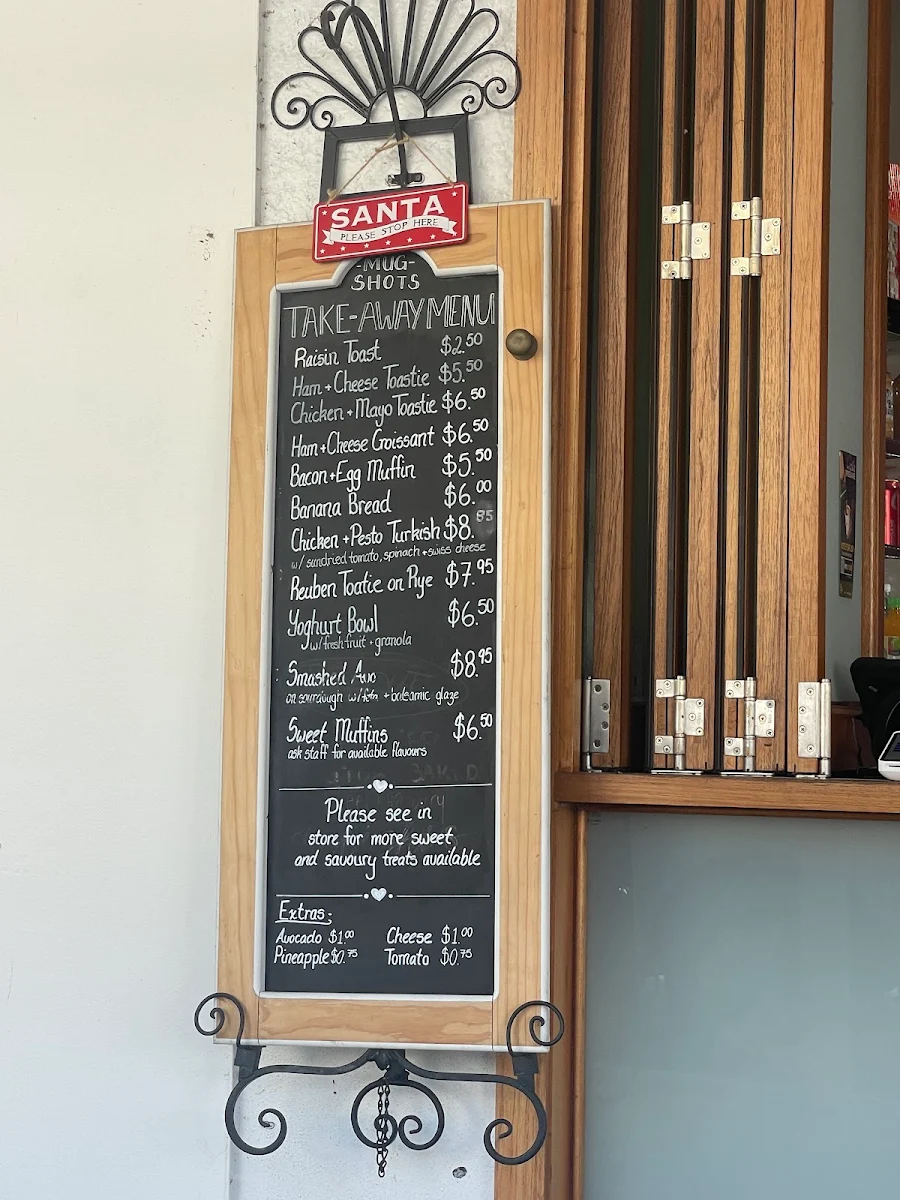 SANTA
PLEASE STOP HERE
-MUG-
SHOTS
TAKE-AWAY MENU
Raisin Toast $2.50
Ham + Cheese Toastie $5.50
Chicken + Mayo Toastie $6.50
Ham + Cheese Croissant $6.50
Bacon + Egg Muffin $5.50
Banana Bread $6.00
Chicken + Pesto Turkish $8.95
w/ sundried tomato, spinach + swiss cheese
Reuben Toatie on Rye $7.95
Yoghurt Bowl $6.50
w/ fresh fruit + granola
Smashed Avo $8.95
on sourdough w/ feta + balsamic glaze
Sweet Muffins $6.50
ask staff for available flavours
Please see in
store for more sweet
and savoury treats available
Extras:
Avocado $1.00 Cheese $1.00
Pineapple $0.75 Tomato $0.75